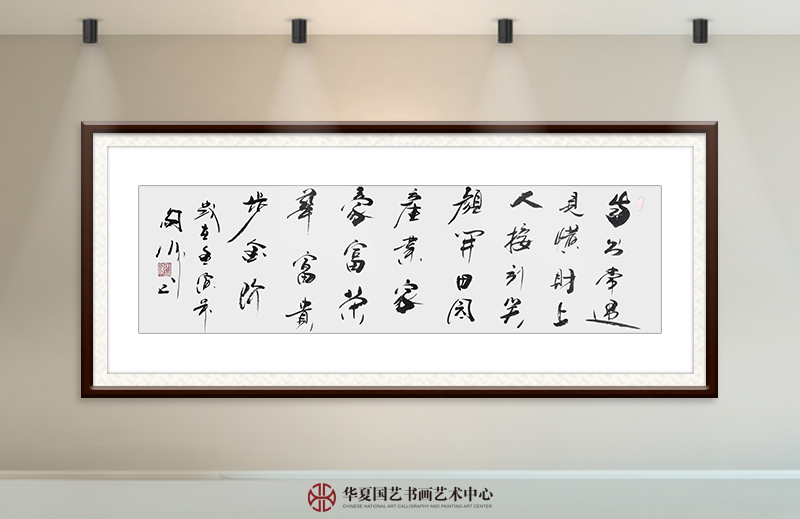 公常遇
見橫財上
人接引笑
顏開田園
產業家
豪富榮
華富貴
步金階
歲在
华夏国艺书画艺术中心
CHINESE NATIONAL ART CALLIGRAPHY AND PAINTING ART CENTER